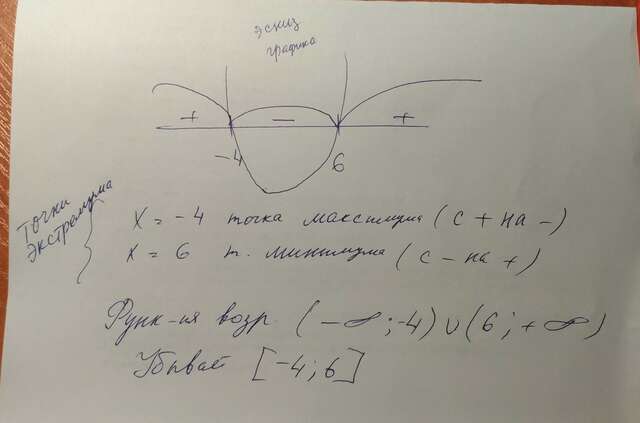 эскиз
графика
+ − +
−4 6
Точки
Экстремума
X = −4 точка максимума (с + на −)
X = 6 т. минимума (с − на +)
Функ-ия возр. (−∞; −4) ∪ (6; +∞)
Убывает [−4; 6]